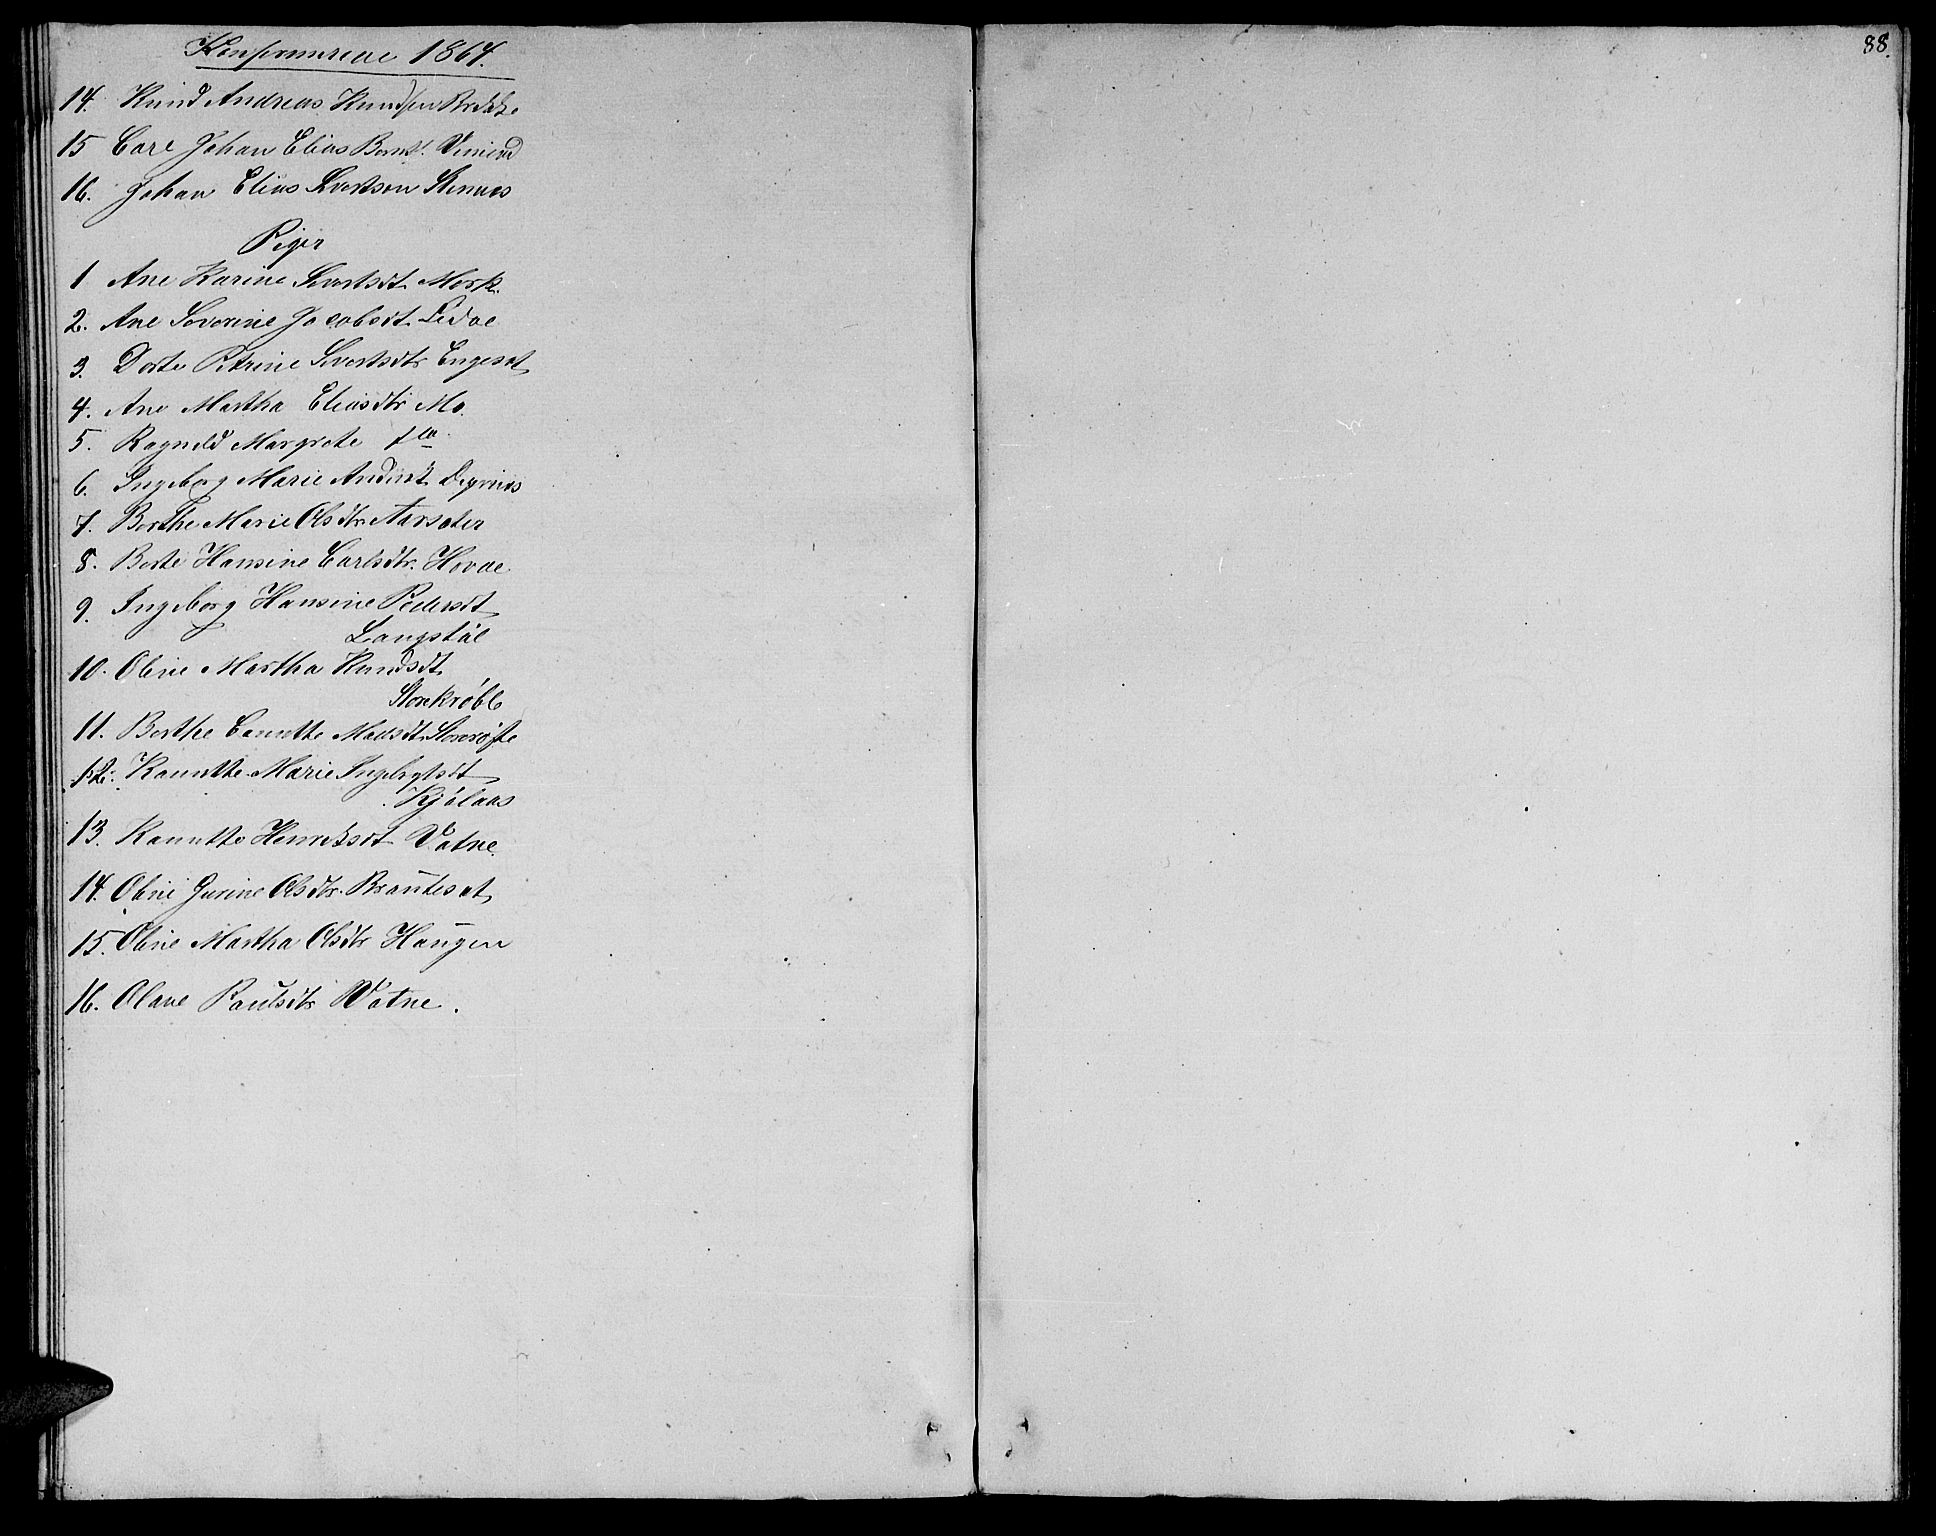 Konfirmerede 1864.
88.
14. Knud Andreas Knudsen Brekke
15 Carl Johan Elias Bernts.
16. Johan Elias Sivertsen Stennes
Piger
1 Ane Karine Sivertsdt. Mork.
2. Ane Severine Jacobsdt. Lidal
3. Dorte Petrine Sivertsdtr Engeset
4. Ane Martha Eliasdtr Mo.
5. Ragnild Margrete
6. Ingeborg Marie Degnæs
7. Berthe Marie Olsdtr. Aarsæter
8. Berte Hansine Carlsdtr. Hovde
9. Ingeborg Hansine Pedersdt.
Langstøl
10. Oline Martha Knudsdt.
11. Berthe Canutte Madsdt.
12. Kanutte Marie Ingebrgtsdt
Kjølaas
13. Kanutte Henriksdt Vatne.
14. Oline Gurine Olsdtr. Brauteset
15. Oline Martha Olsdtr Haugen
16. Olave Paulsdtr Vatne.